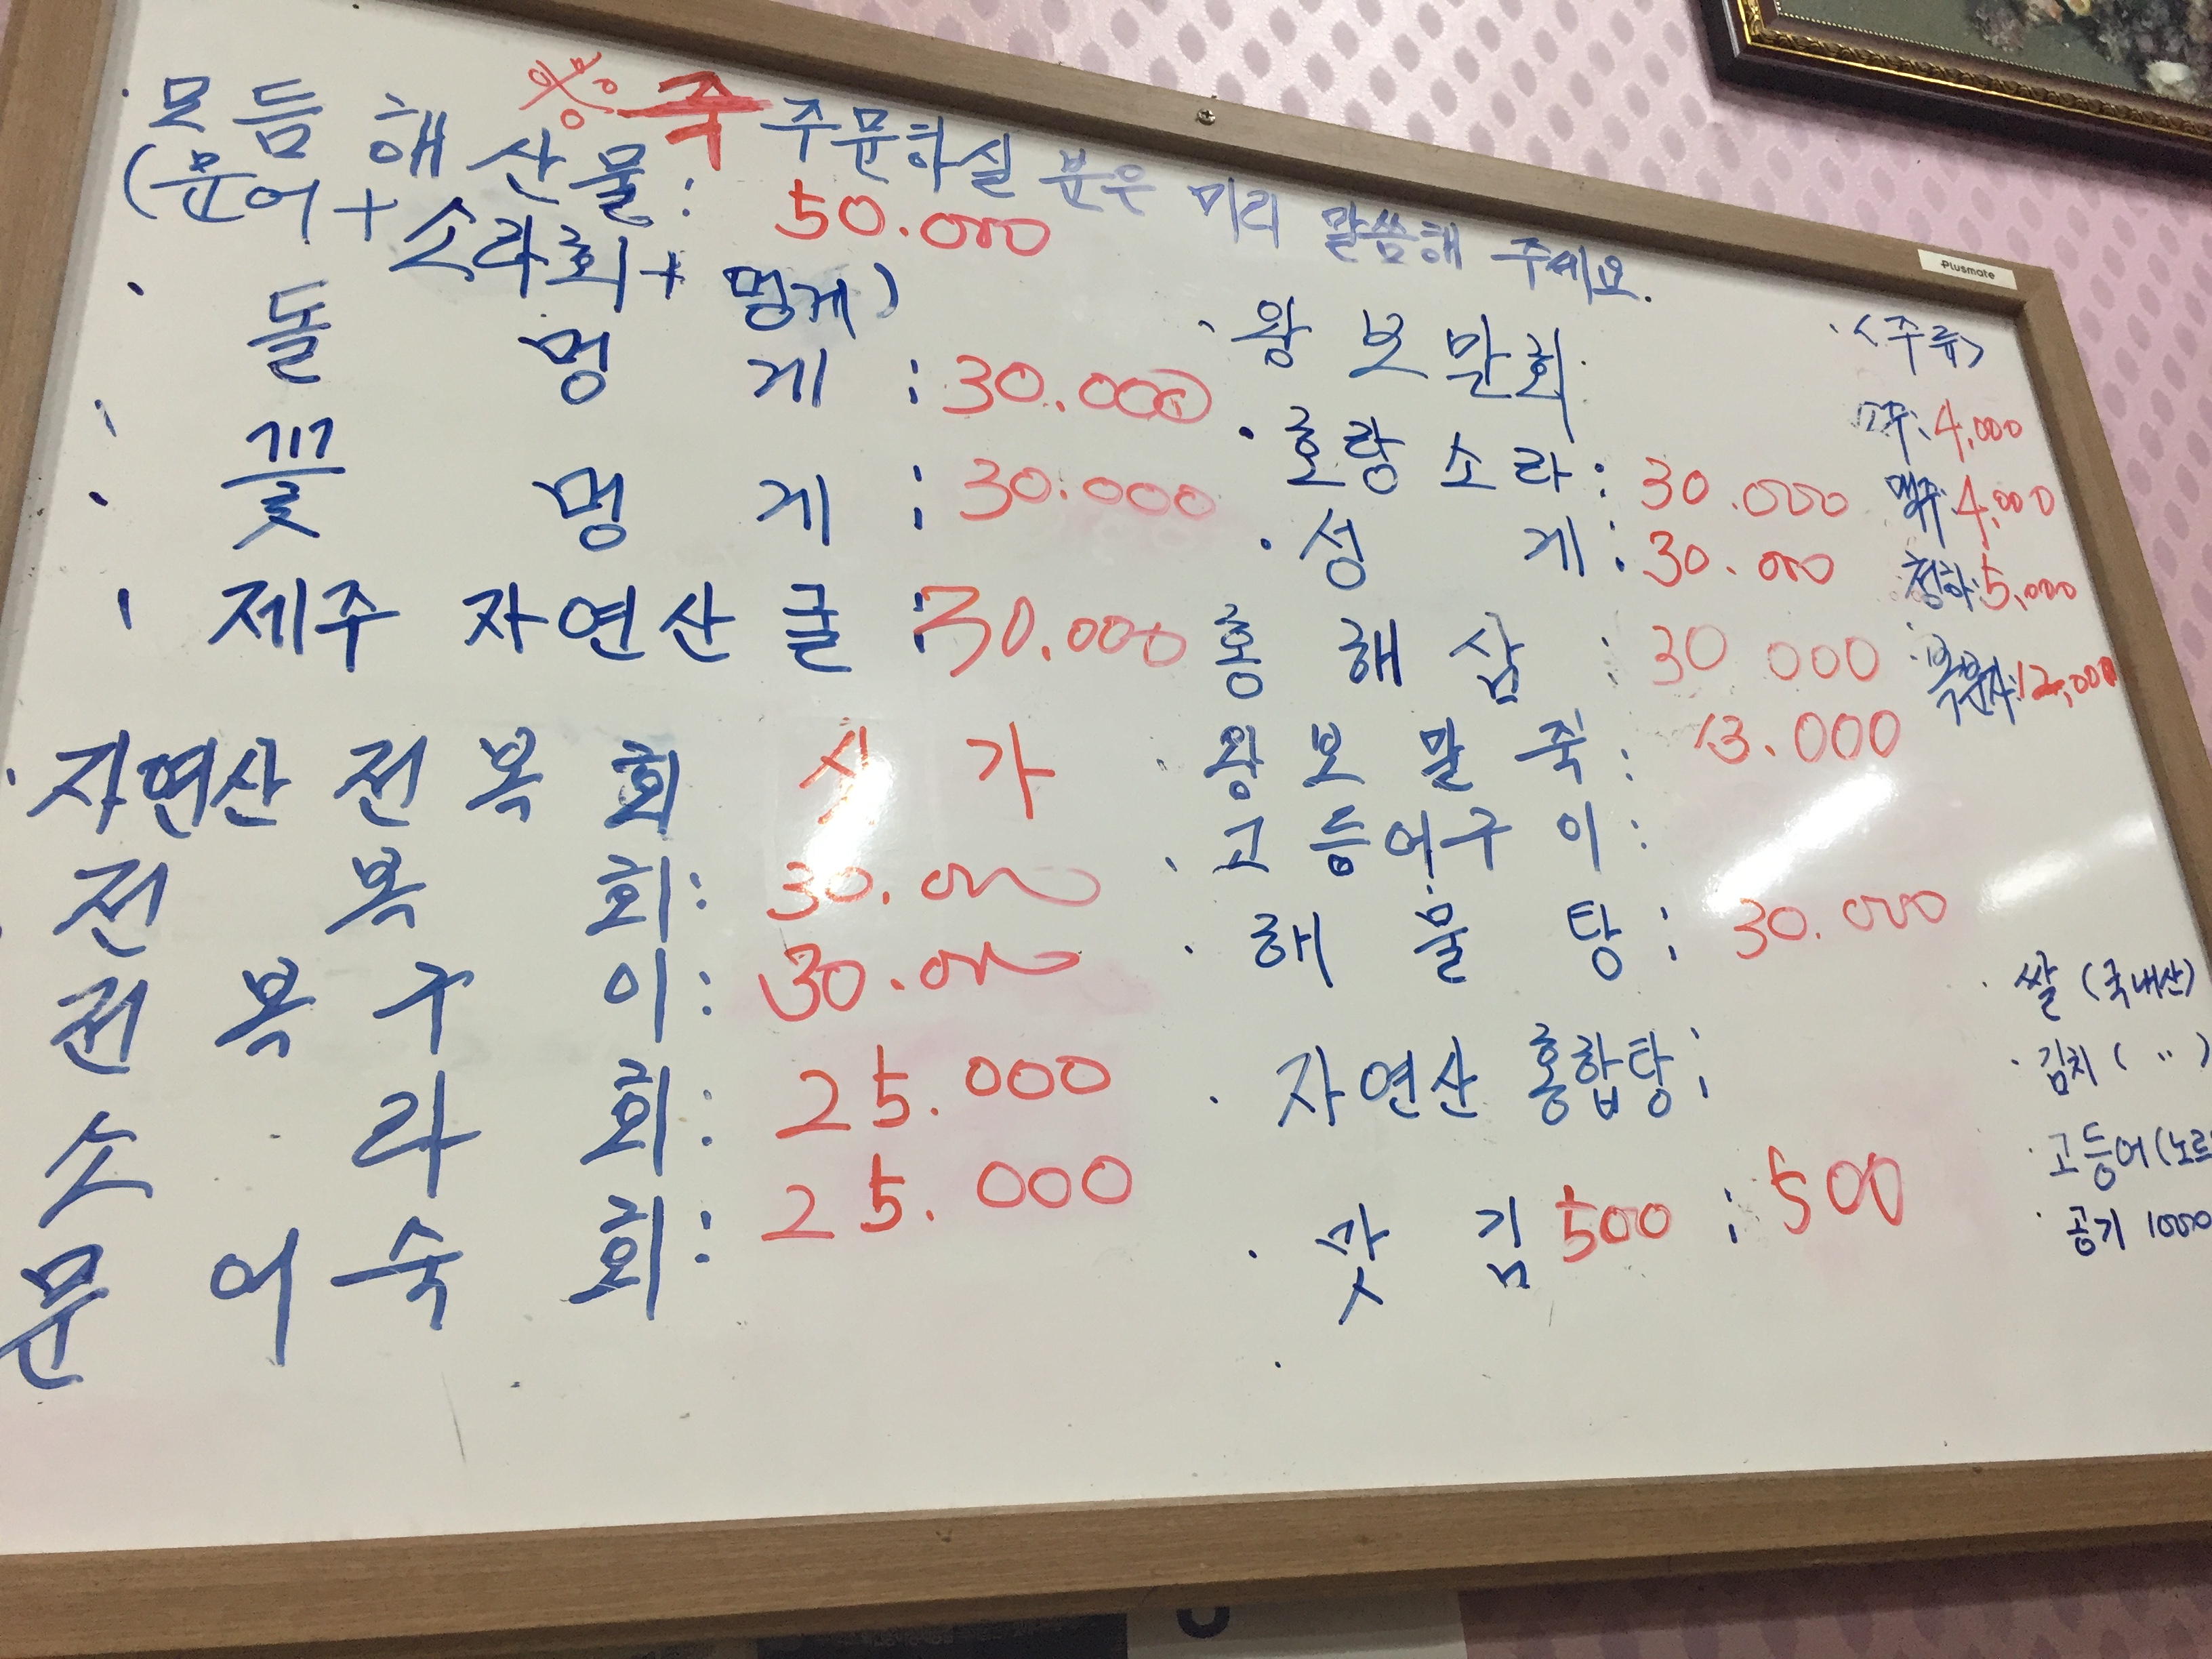 ※ 죽 주문하실 분은 미리 말씀해 주세요.
· 모듬 해산물: 50.000
(문어+소라회+멍게)
· 돌 멍게 : 30.000
· 꽃 멍게 : 30.000
· 제주 자연산 굴 : 30.000
· 자연산 전복회 시가
전복회: 30.000
전복구이: 30.000
소라회: 25.000
문어숙회: 25.000
· 왕보말회:
· 호랑소라: 30.000
· 성게: 30.000
홍해삼: 30 000
· 왕보말죽: 13.000
· 고등어구이:
· 해물탕: 30.000
· 자연산 홍합탕:
· 맛김 500 : 500
· <주류>
4,000
맥주: 4,000
청하: 5,000
· 복분자: 12,000
· 쌀 (국내산)
· 김치 ( 〃 )
· 고등어 (노르
· 공기 1000
Plusmate